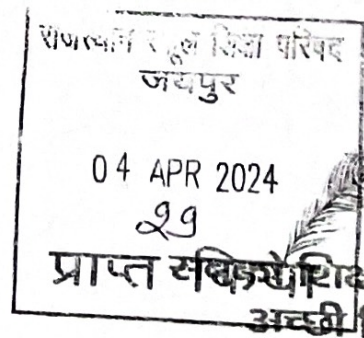 राजस्थान स्कूल शिक्षा परिषद
जयपुर
04 APR 2024
29
प्राप्त
अच्छी